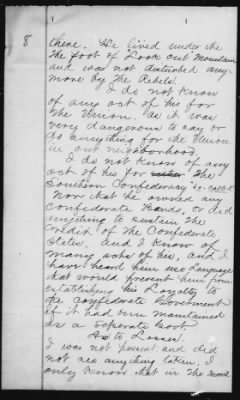 8
there. He lived under the
the foot of Look out Mountain
and was not disturbed any
more by the Rebels.
I do not know
of any act of his for
the Union. as it was
very dangerous to say or
do anything for the Union
in our neighborhood.
I do not know of any
act of his for the
Southern Confederacy so-called
Nor that he owned any
Confederate bonds, or did
anything to sustain the
credit of the Confederate
States. And I know of
many acts of his, and I
have heard him use language
that would prevent him from
establishing his Loyalty to
the Confederate Government
if it had been maintained
as a seperate Govt
As to Losses.
I was not present and did
not see anything taken, I
only know that in the